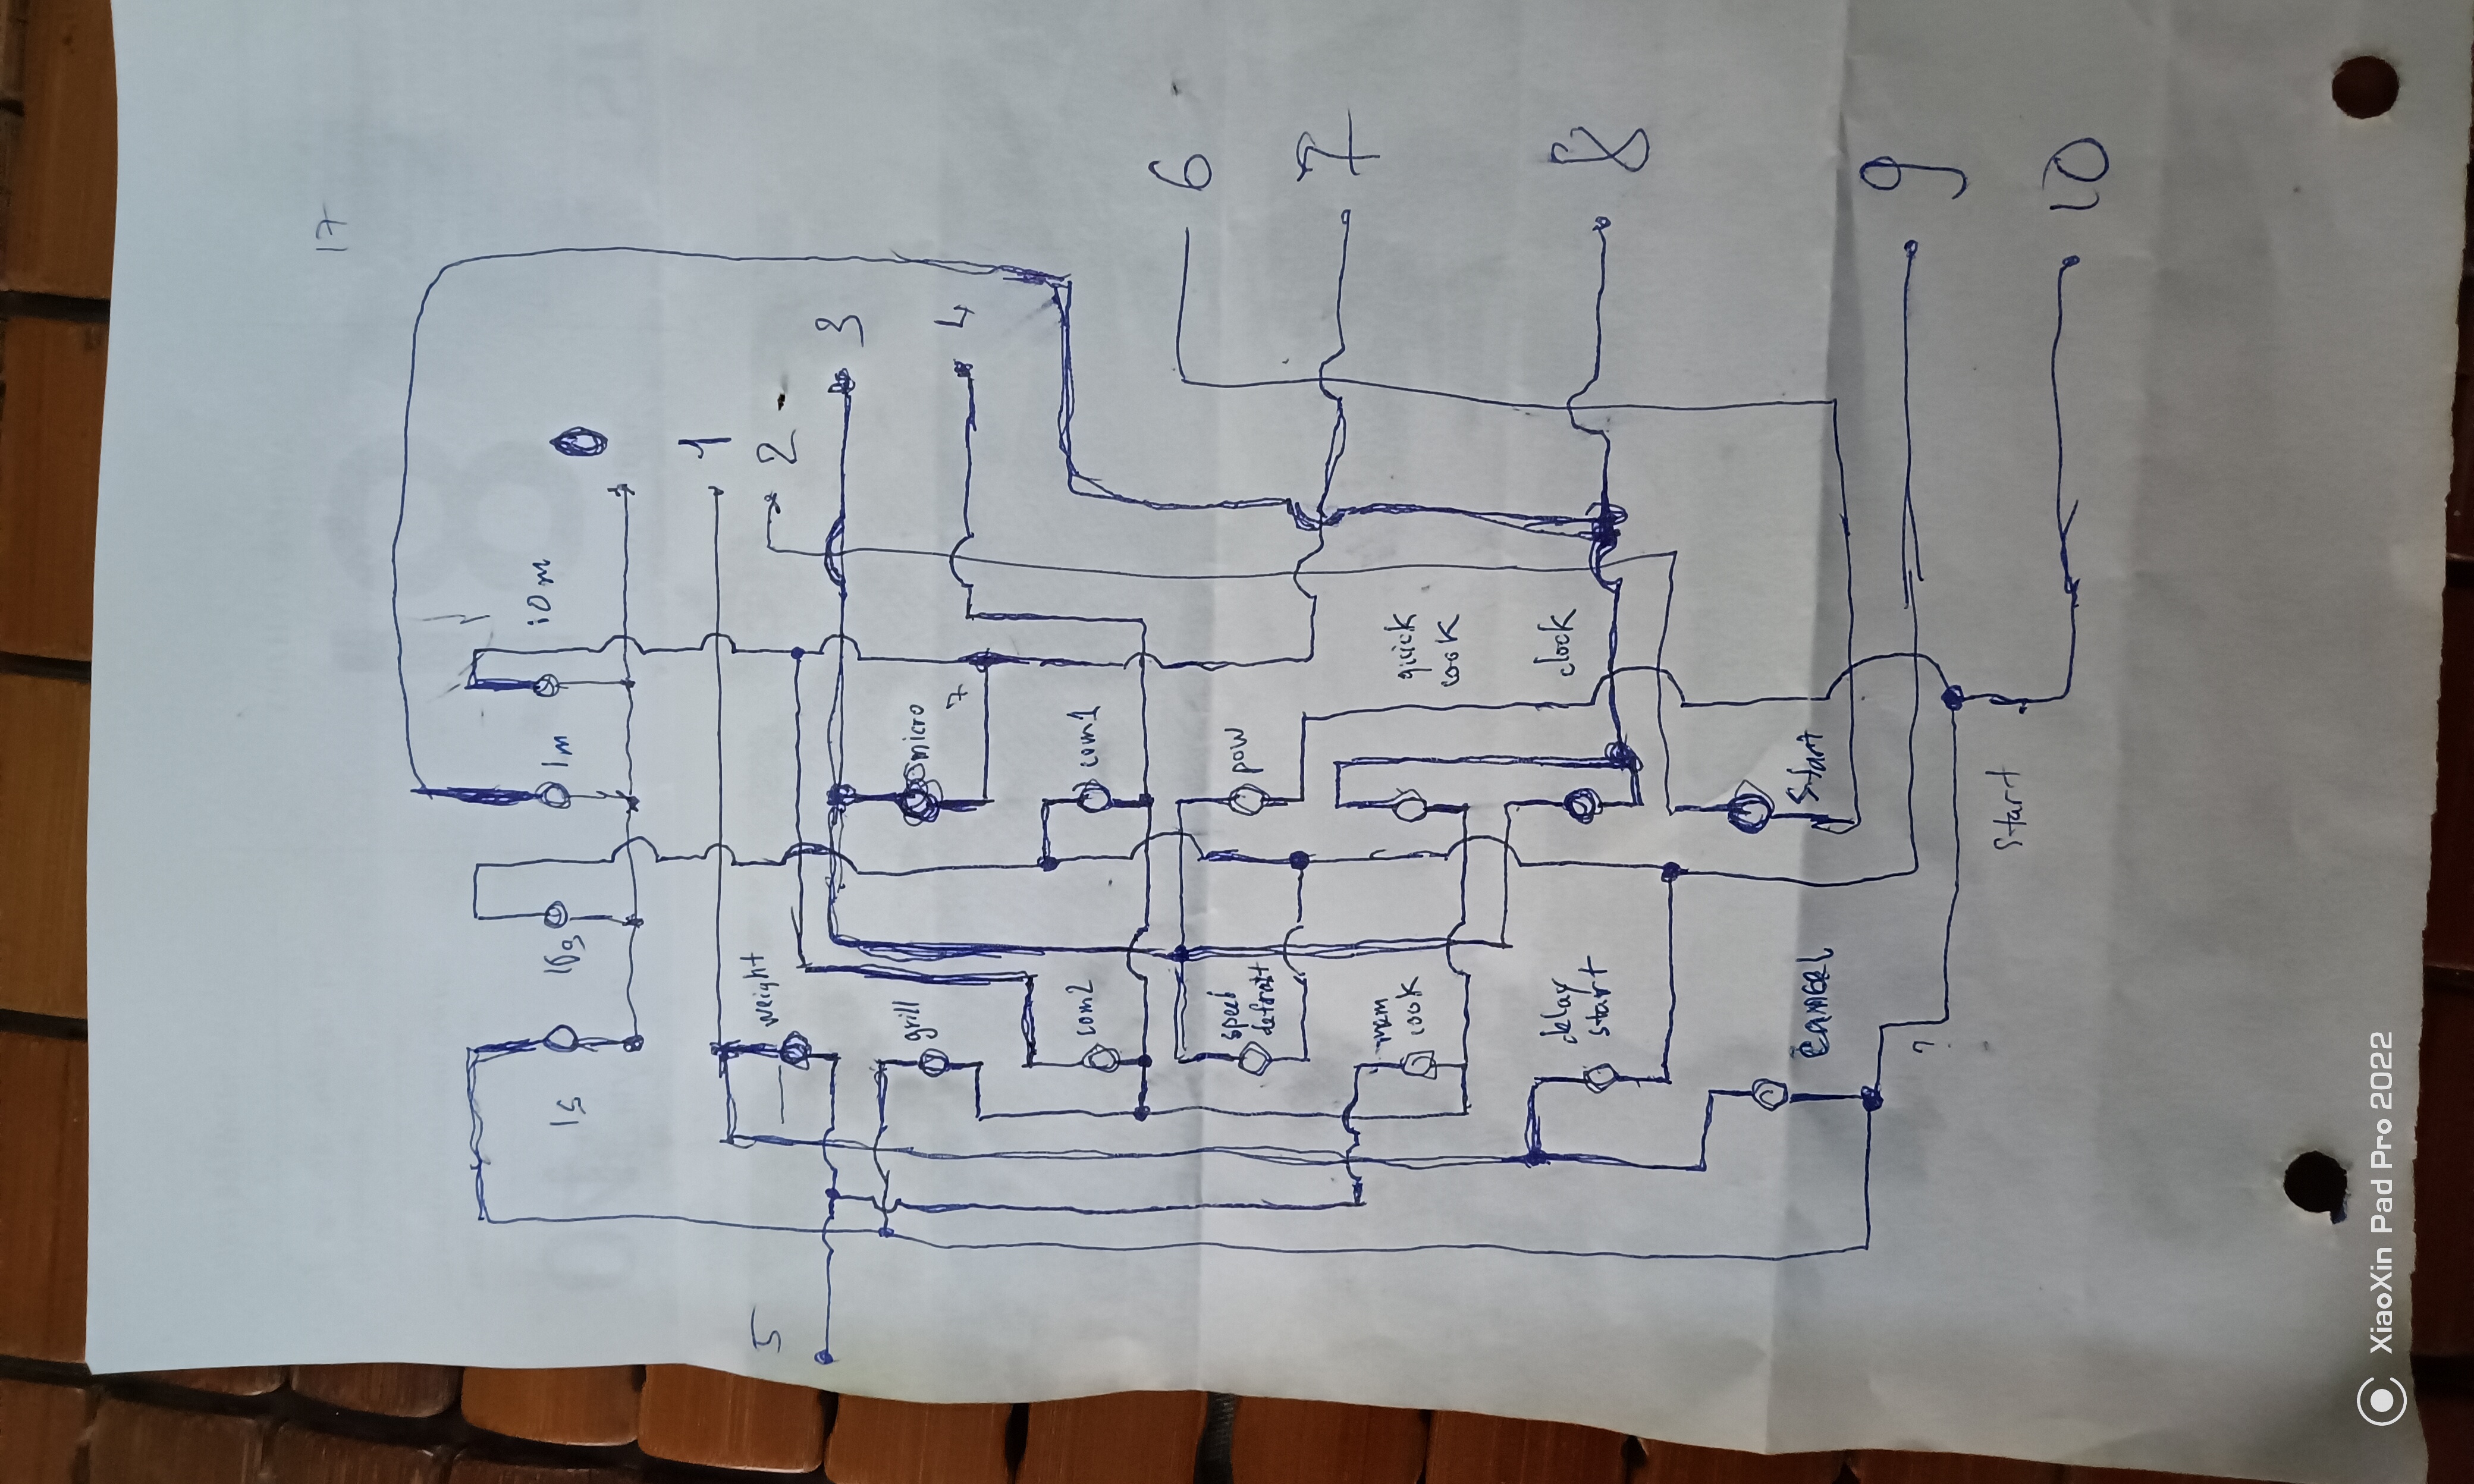 17
1s
10s
1m
10m
0
1
weight
2
5
3
grill
micro
7
4
com2
com1
6
speed
defrost
pow
7
mem
cook
quick
cook
delay
start
clock
8
Start
cancel
9
?
start
10
XiaoXin Pad Pro 2022